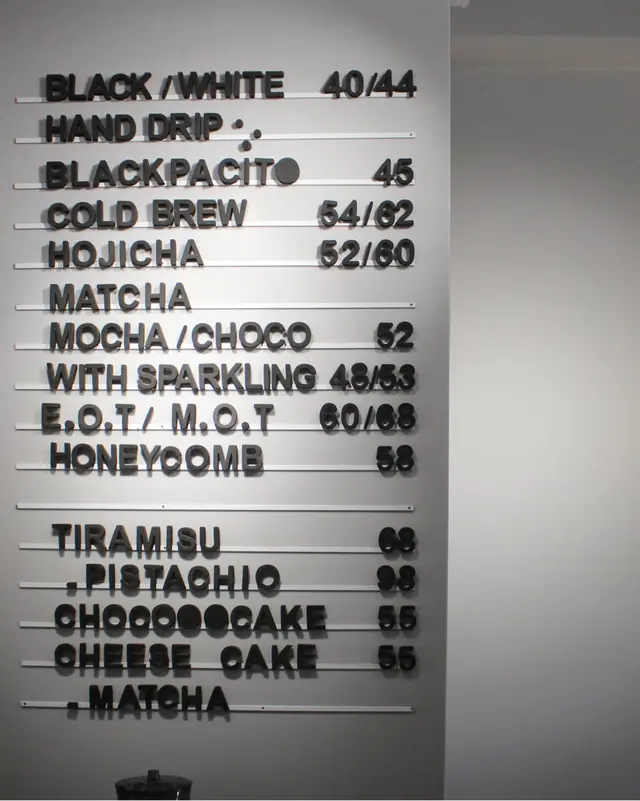 BLACK /WHITE 40/44
HAND DRIP
BLACKPACIT● 45
COLD BREW 54/62
HOJICHA 52/60
MATCHA
MOCHA /CHOCO 52
WITH SPARKLING 48/53
E.O.T/ M.O.T 60/68
HONEYCOMB 58
TIRAMISU 68
.PISTACHIO 98
CHOCO●●CAKE 55
CHEESE CAKE 55
.MATCHA